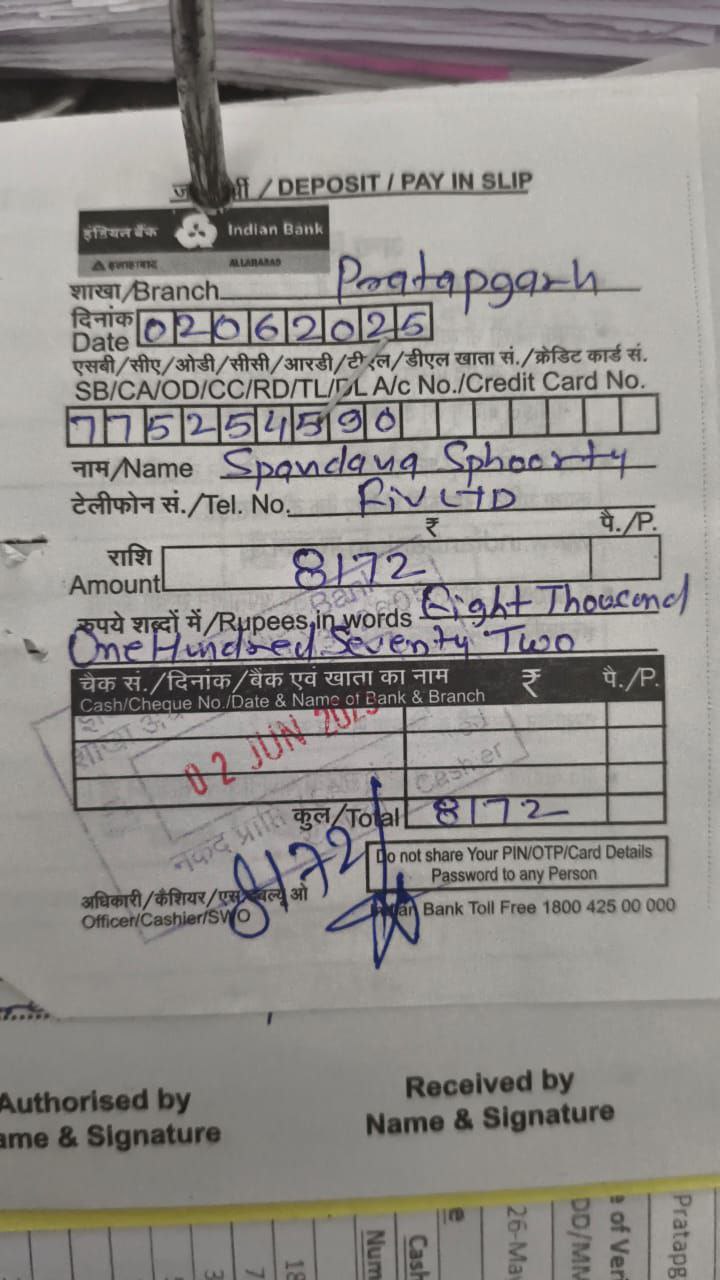 / DEPOSIT / PAY IN SLIP
इंडियन बैंक Indian Bank
इलाहाबाद ALLAHABAD
शाखा/Branch Pratapgarh
दिनांक
Date 02062025
एसबी/सीए/ओडी/सीसी/आरडी/टीएल/डीएल खाता सं./क्रेडिट कार्ड सं.
SB/CA/OD/CC/RD/TL/DL A/c No./Credit Card No.
775254590
नाम/Name Spandana Sphoorty
टेलीफोन सं./Tel. No. Fiv LTD
₹ पै./P.
राशि
Amount 8172
रुपये शब्दों में/Rupees in words Eight Thousand
One Hundred Seventy Two
चैक सं./दिनांक/बैंक एवं खाता का नाम ₹ पै./P.
Cash/Cheque No./Date & Name of Bank & Branch
02 JUN 2025
Cashier
नकद प्राप्ति
कुल/Total 8172
8172
Do not share Your PIN/OTP/Card Details
Password to any Person
अधिकारी/कैशियर/एस डबल्यू ओ
Officer/Cashier/SWO
Indian Bank Toll Free 1800 425 00 000
Authorised by
ame & Signature
Received by
Name & Signature
Num
Cash
26-Ma
DD/MM
e of Ver
Pratapg
18
7
3